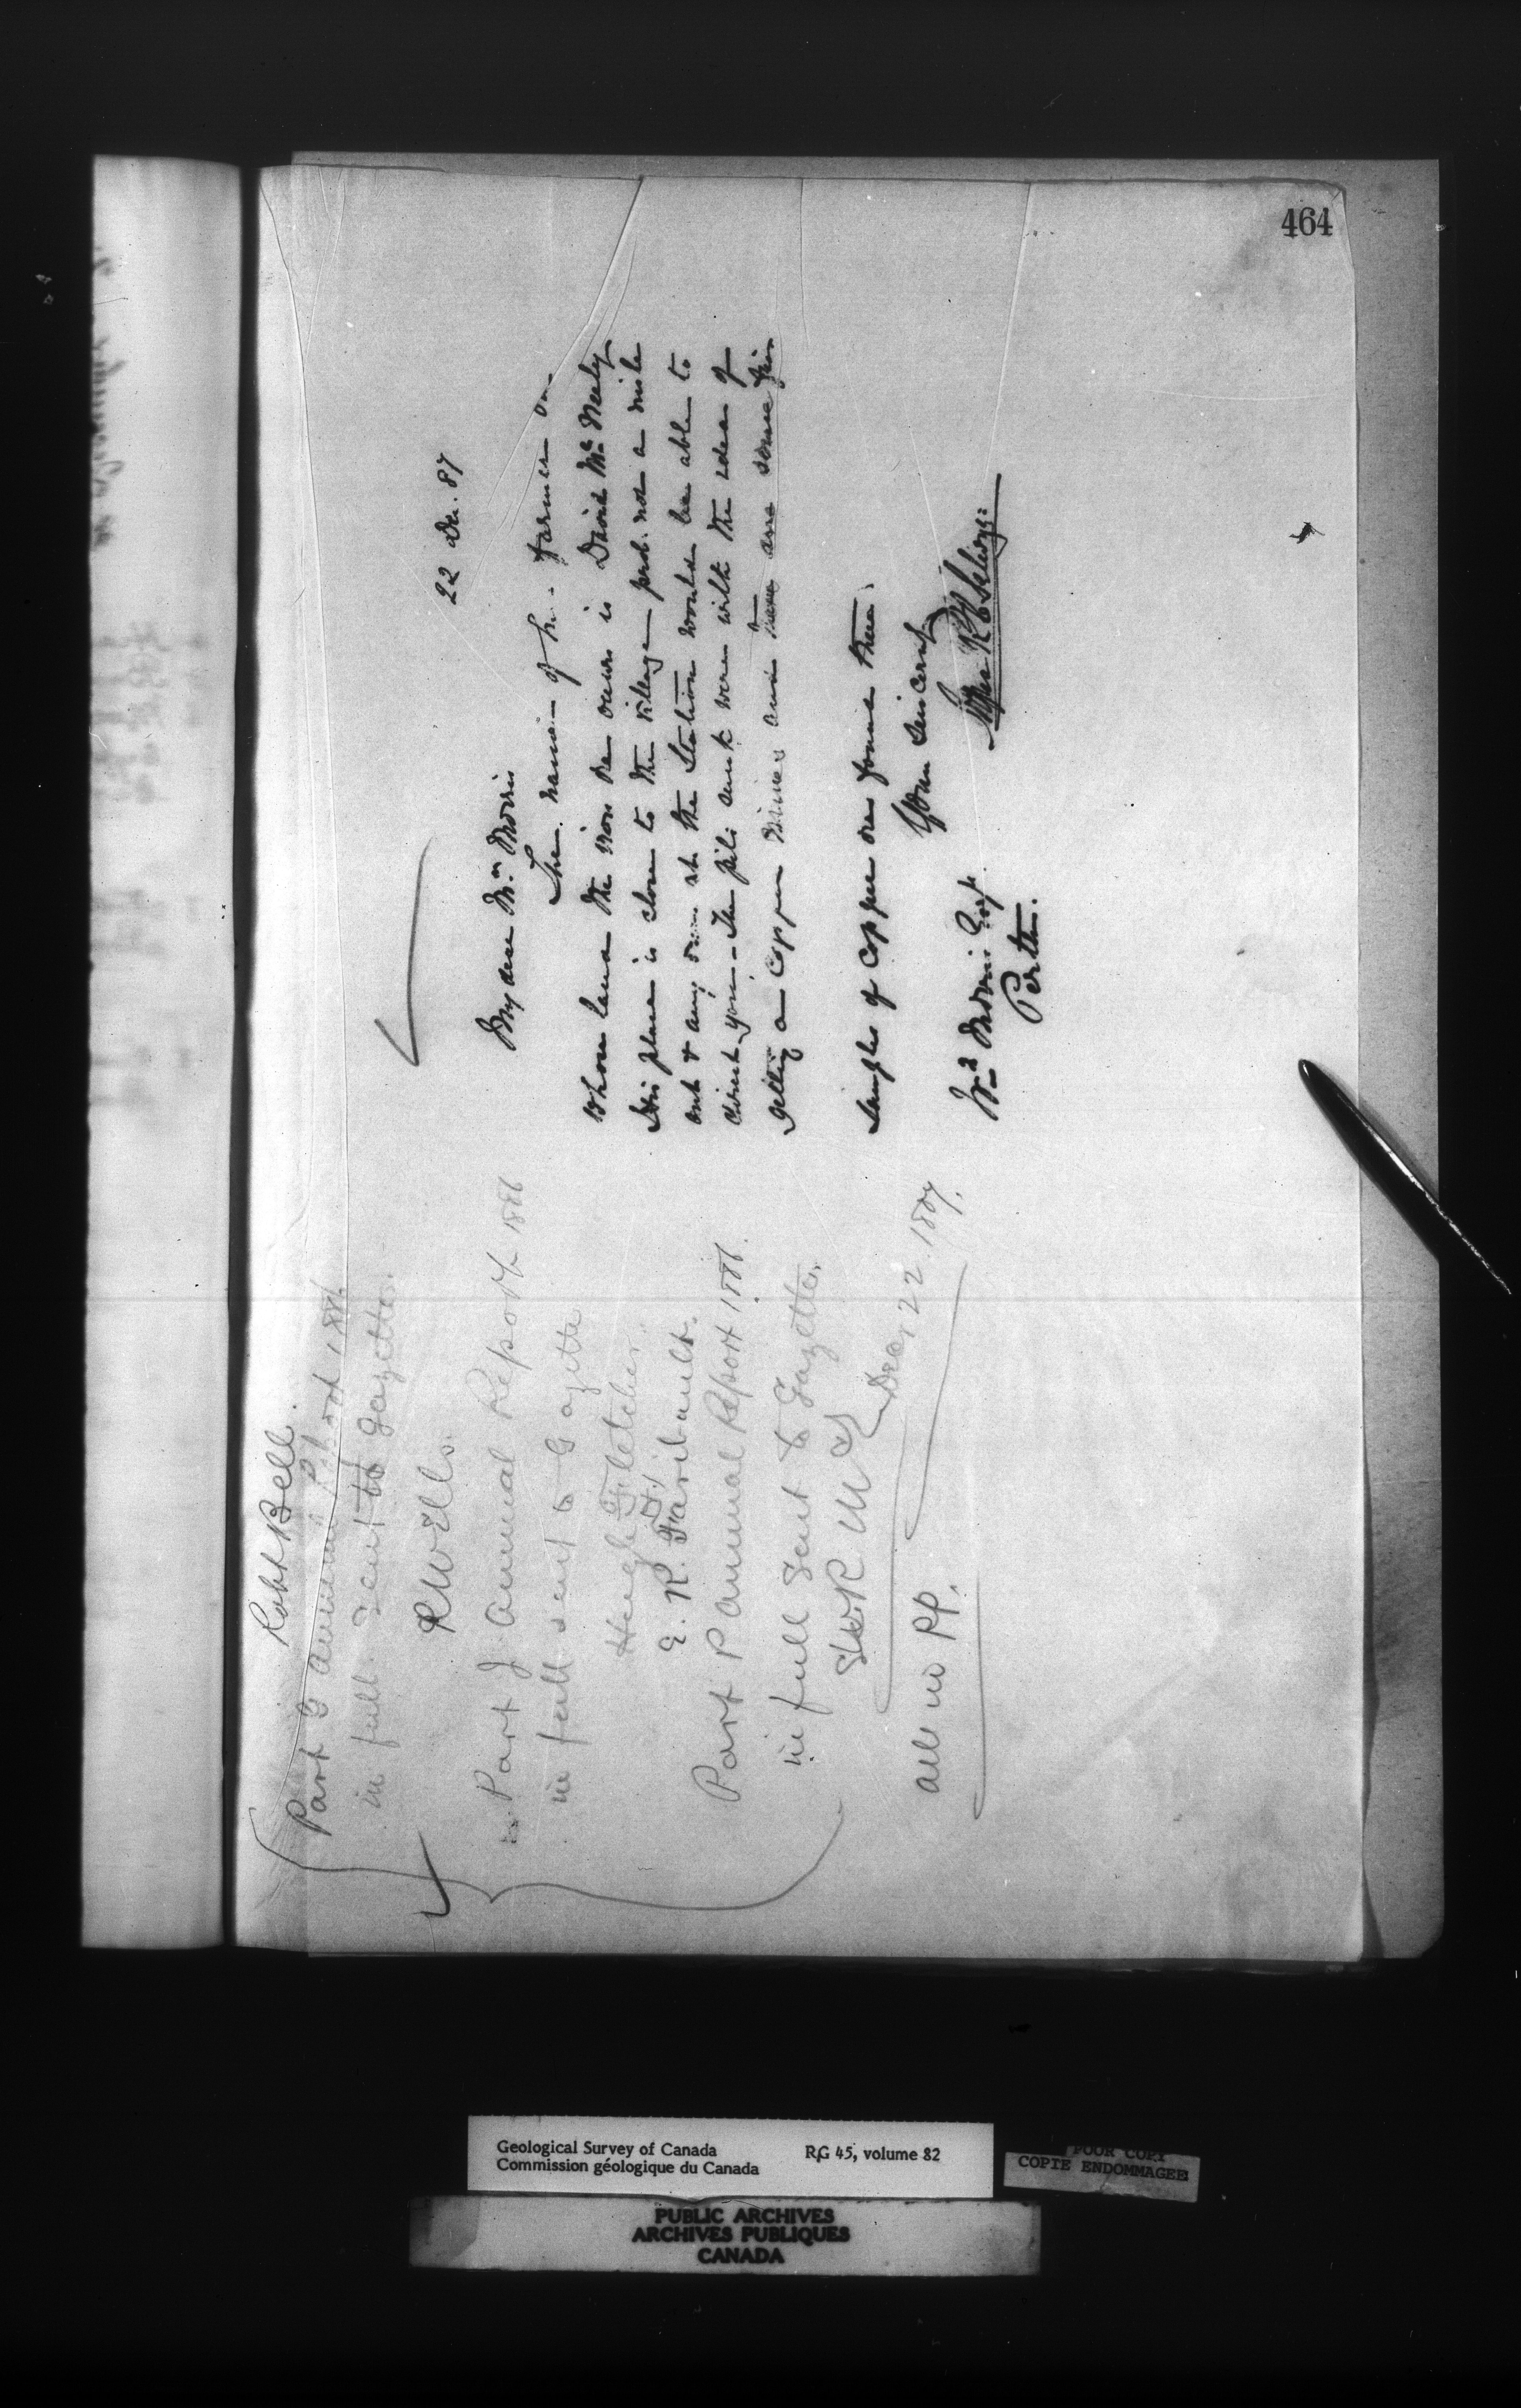 464
Robt Bell.
Part G Annual Report 1886
in full. Sent to Gazette.
RW Ells.
Part J Annual Report 1886
in full sent to Gazette
Hugh Fletcher.
E. R. Faribault.
Part P Annual Report 1886.
in full Sent to Gazette.
Dec, 22. 1887.
all in PP.
22 Dec. 87
My dear Mr. Morris
The name of the farmer on
whose land the iron ore occurs is David McNeely
His place is close to the village prob. not a mile
out & any one at the Station would be able to
direct you. The pits sunk were with the idea of
getting a copper mine and there are some fair
samples of copper ore found there.
Yours sincerely
Wm Morris Esq.
Perth.
Geological Survey of Canada
Commission géologique du Canada
RG 45, volume 82
POOR COPY
COPIE ENDOMMAGEE
PUBLIC ARCHIVES
ARCHIVES PUBLIQUES
CANADA